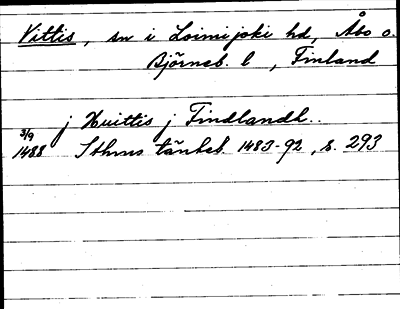 Vittis, sn i Loimijoki hd, Åbo o.
Björneb. l, Finland
j Huittis j Findlandh..
3/9
1488 Sthms tänkeb. 1483-92, s. 293